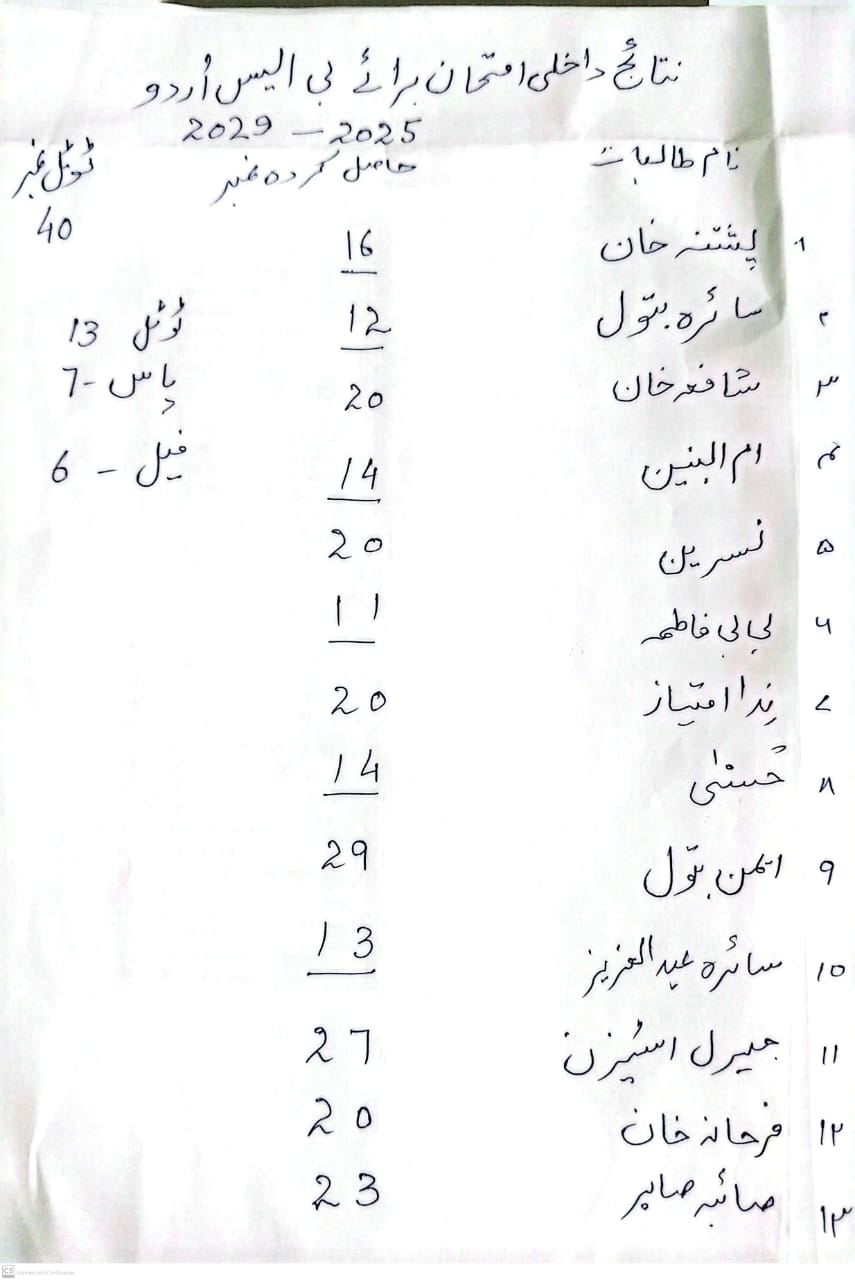 نتائج داخلی امتحان برائے بی ایس اُردو
2025 – 2029
نام طالبات حاصل کردہ نمبر ٹوٹل نمبر
40
۱ پشتنہ خان 16
۲ سائرہ بتول 12 ٹوٹل 13
۳ شافعہ خان 20 پاس - 7
۴ ام البنین 14 فیل - 6
۵ نسرین 20
۶ بی بی فاطمہ 11
۷ ندا امتیاز 20
۸ حُسنیٰ 14
9 ایمن بتول 29
10 سائرہ عبدالعزیز 13
11 27
۱۲ فرحانہ خان 20
۱۳ صائبہ صابر 23
CS Scanned with CamScanner